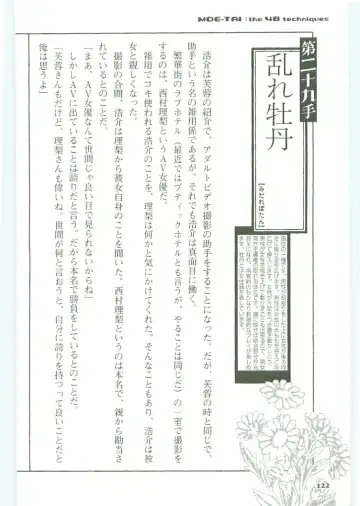 MOE-TAI : the 48 techniques
第二十九手
乱れ牡丹
【みだれぼたん】
浩介は芙蓉の紹介で、アダルトビデオ撮影の助手をすることになった。だが、芙蓉の時と同じで、
助手という名の雑用係であるが、それでも浩介は真面目に働く。
繁華街のラブホテル(最近ではブティックホテルとも言うが、やることは同じだ)の一室で撮影を
するのは、西村理梨というAV女優だ。
雑用でコキ使われる浩介のことを、理梨は何かと気にかけてくれた。そんなこともあり、浩介は彼
女と親しくなった。
撮影の合間、浩介は理梨から彼女自身のことを聞いた。西村理梨というのは本名で、親から勘当さ
れているとのことだ。
「まあ、AV女優なんて世間じゃ良い目で見られないからね」
しかしAVに出ていることは誇りだと言う。だから本名で勝負をしているとのことだ。
「芙蓉さんもだけど、理梨さんも偉いね。世間が何と言おうと、自分に誇りを持つって良いことだと
俺は思うよ」
122